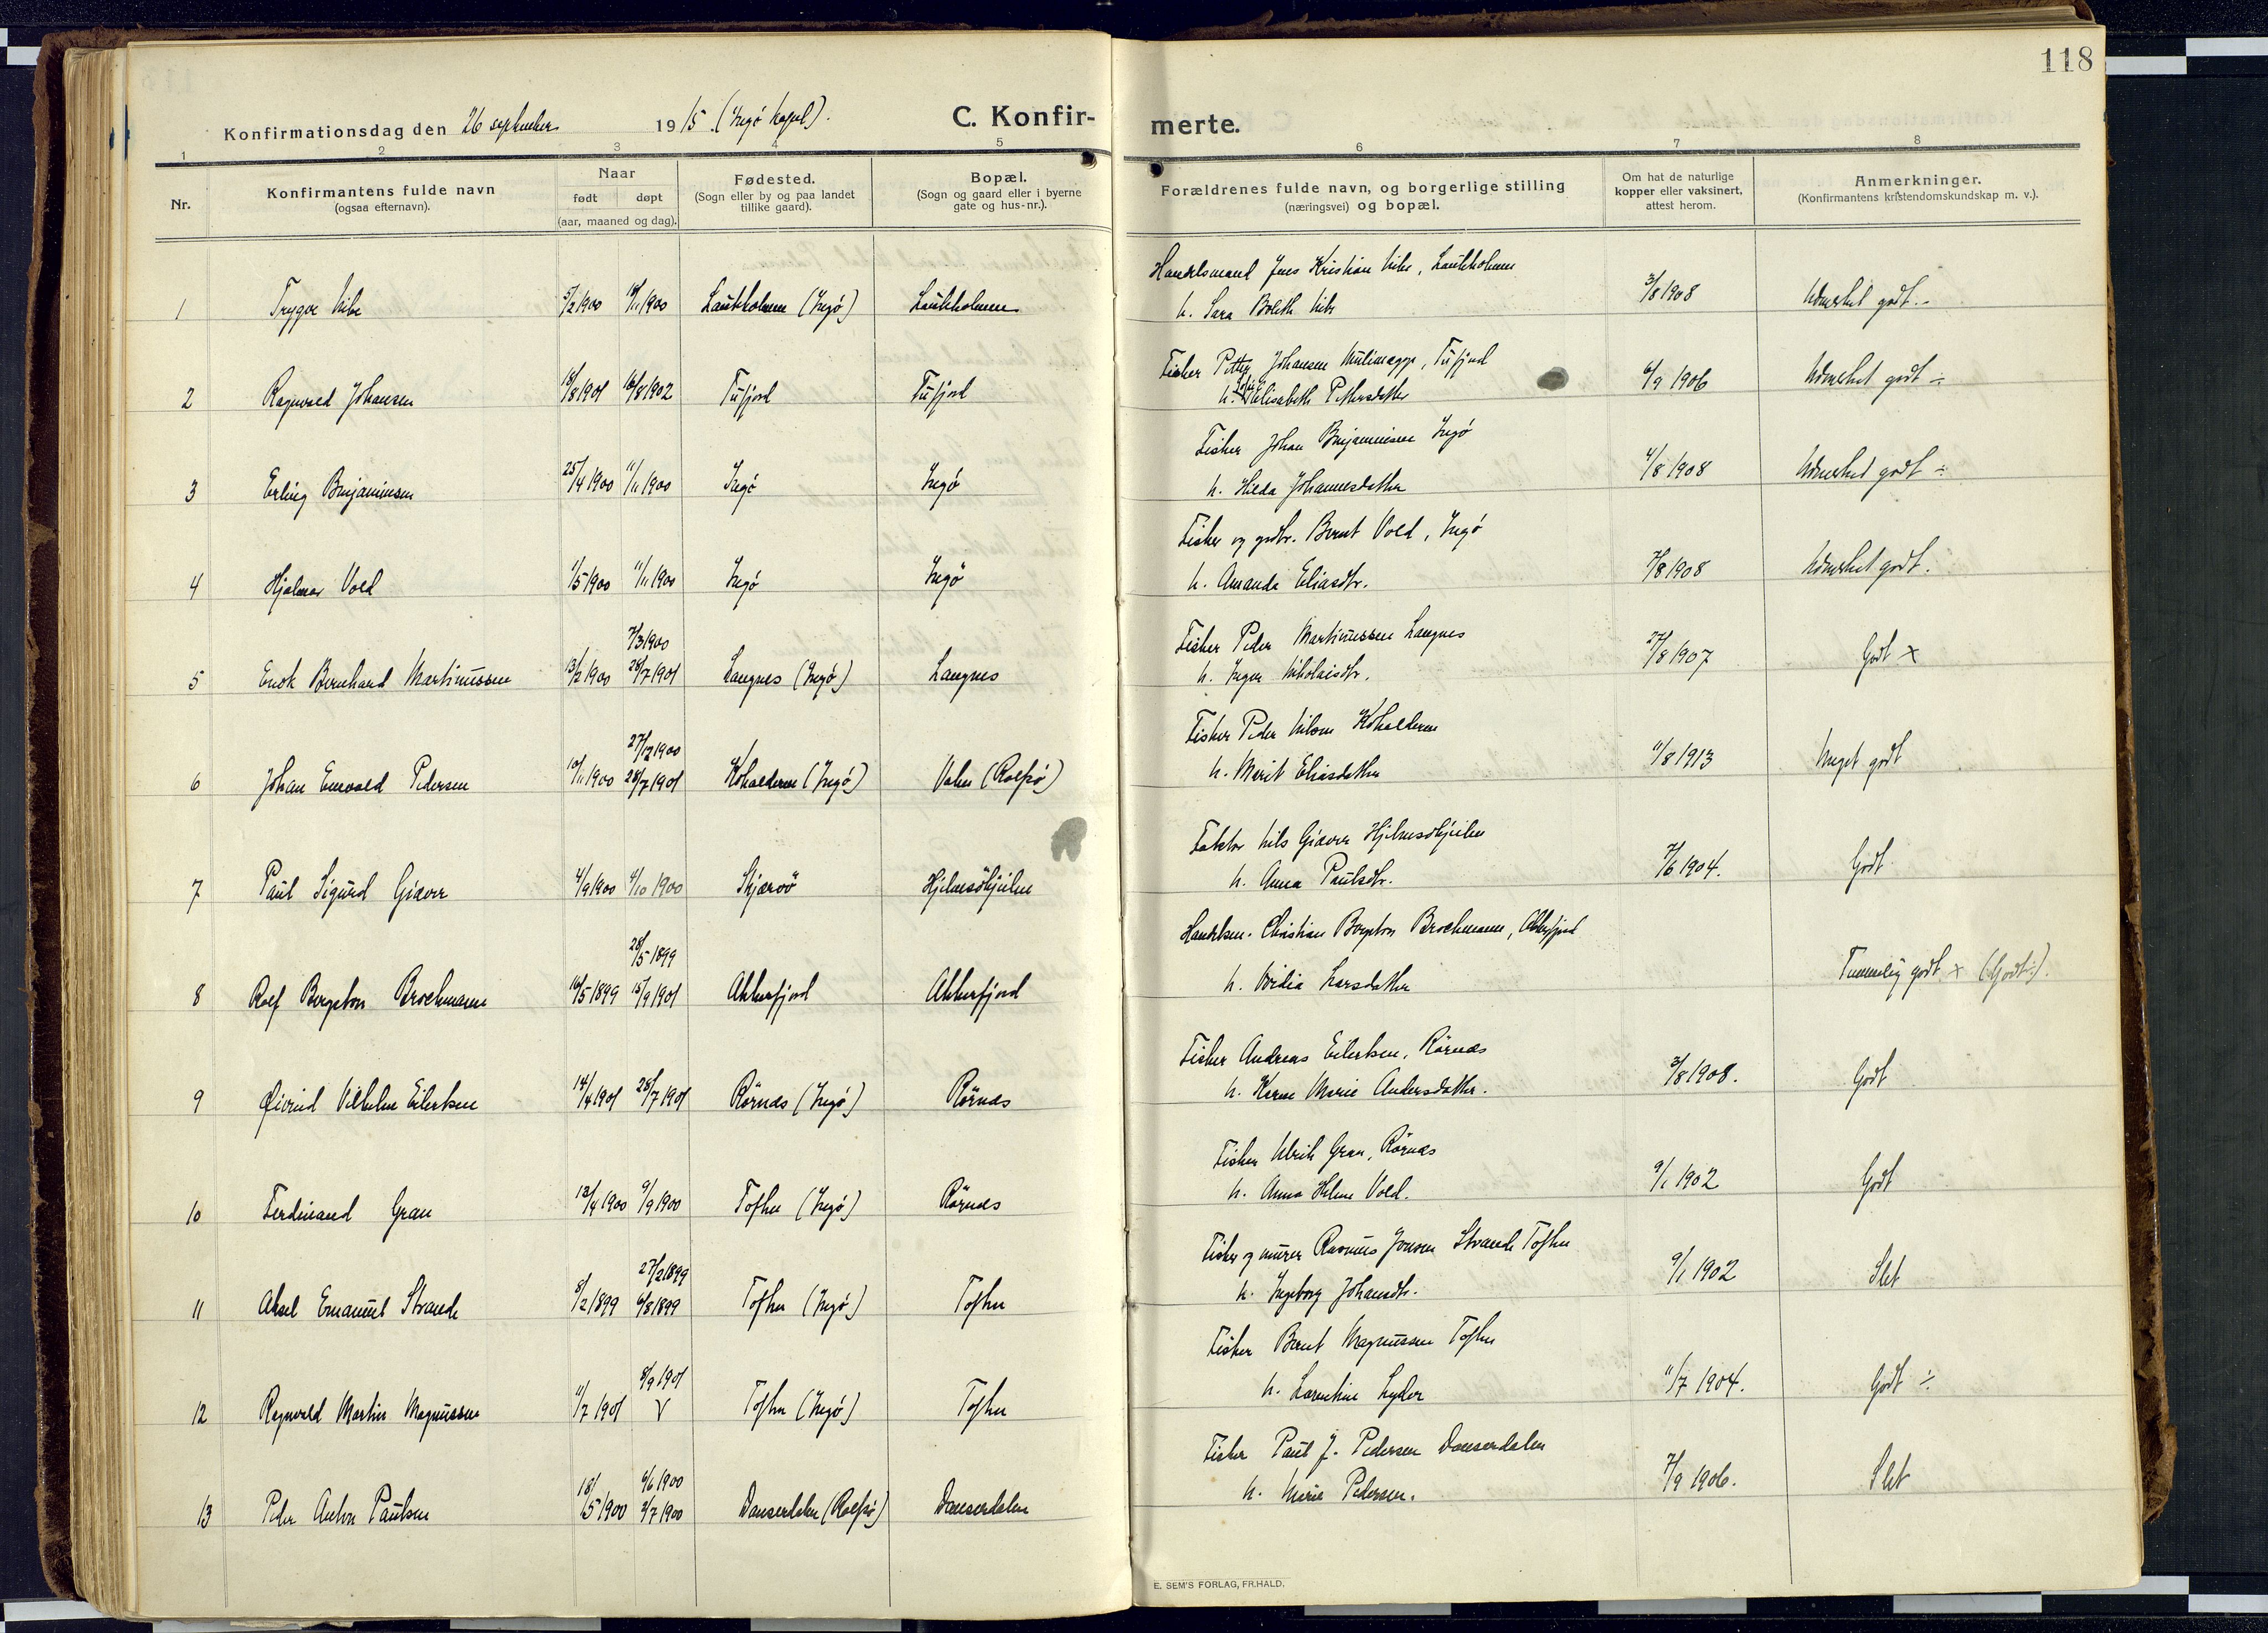 118
Konfirmationsdag den 26 september 1915. (Ingö kapel).
C. Konfirmerte.
1 2 3 4 5 6 7 8
Nr.
Konfirmantens fulde navn
(ogsaa efternavn).
Naar
født døpt
(aar, maaned og dag).
Fødested.
(Sogn eller by og paa landet
tillike gaard).
Bopæl.
(Sogn og gaard eller i byerne
gate og hus-nr.).
Forældrenes fulde navn, og borgerlige stilling
(næringsvei) og bopæl.
Om hat de naturlige
kopper eller vaksinert,
attest herom.
Anmerkninger.
(Konfirmantens kristendomskundskap m. v.).
Handelsmand Jens Kristian Nibe, Laukholmen
1 Trygve Nibe 5/2 1900 /11 1900 Laukholmen (Ingö) Laukholmen h. Sara Boleth Nibe 3/8 1908 Udmerket godt.-
Fisker Petter Johansen , Tufjord
2 Ragnvald Johansen 18/8 1901 /8 1902 Tufjord Tufjord h. Elisabeth Pettersdatter 6/9 1906 Udmerket godt ÷
Fisker Johan Benjaminsen Ingö
3 Erling Benjaminsen 25/4 1900 11/11 1900 Ingö Ingö h. Hilda Johannesdatter 4/8 1908 Udmerket godt ÷
Fisker og gdbr. Bernt Vold, Ingö
4 Hjalmar Vold 1/5 1900 11/11 1900 Ingö Ingö h. Amanda Eliasdtr. 7/8 1908 Udmerket godt.
7/3 1900
Fisker Peder Martinussen Langnes
5 Enok Bernhard Martinussen 13/2 1900 28/7 1901 Langnes (Ingö) Langnes h. Inger Nikolaisdtr. 27/8 1907 Godt x
27/12 1900
Fisker Peder Nilsen Koholderen
6 Johan Enevald Pedersen 10/11 1900 28/7 1901 Koholderen (Ingö) Valen (Rolfsö) h. Marit Eliasdatter 11/8 1913 Meget godt
Faktor Nils Giæver Hjelmsökjeilen
7 Paul Sigurd Giæver 4/9 1900 4/10 1900 Skjærvö Hjelmsökjeilen h. Anna Paulsdtr. 7/6 1904. Godt.
28/5 1899
Handelsm. Christian Borgeton Brochmann, Akkerfjord
8 Rolf Bergeton Brochmann 16/5 1899 15/9 1901 Akkerfjord Akkerfjord h. Larsdatter Temmelig godt x (Godt÷).
Fisker Andreas Eilertsen, Rörnæs
9 Øivind Vilhelm Eilertsen 14/4 1901 28/7 1901 Rörnæs (Ingö) Rörnæs h. Karen Marie Andersdatter. 3/8 1908. Godt
Fisker Ulrik Gran, Rörnæs
10 Ferdinand Gran 12/4 1900 9/9 1900 Toften (Ingö) Rörnæs h. Anna Helene Vold. 9/1 1902 Godt
27/2 1899
Fisker og murer Rasmus Jonsen Strande Toften
11 Aksel Emanuel Strande 8/2 1899 6/8 1899 Toften (Ingö) Toften h. Ingeborg Johansdtr. 9/1 1902 Slet
8/9 1901
Fisker Bernt Magnussen Toften
12 Ragnvald Martin Magnussen 11/7 1901 V Toften (Ingö) Toften h. Larentine Lyder 11/7 1904. Godt ÷
6/6 1900
Fisker Paul J. Pedersen Danserdalen
13 Peder Anton Paulsen 18/5 1900 2/7 1900 Danserdalen (Rolfsö) Danserdalen h. Maria Pedersen. 7/9 1906. Slet
E. SEM'S FORLAG, FR.HALD.